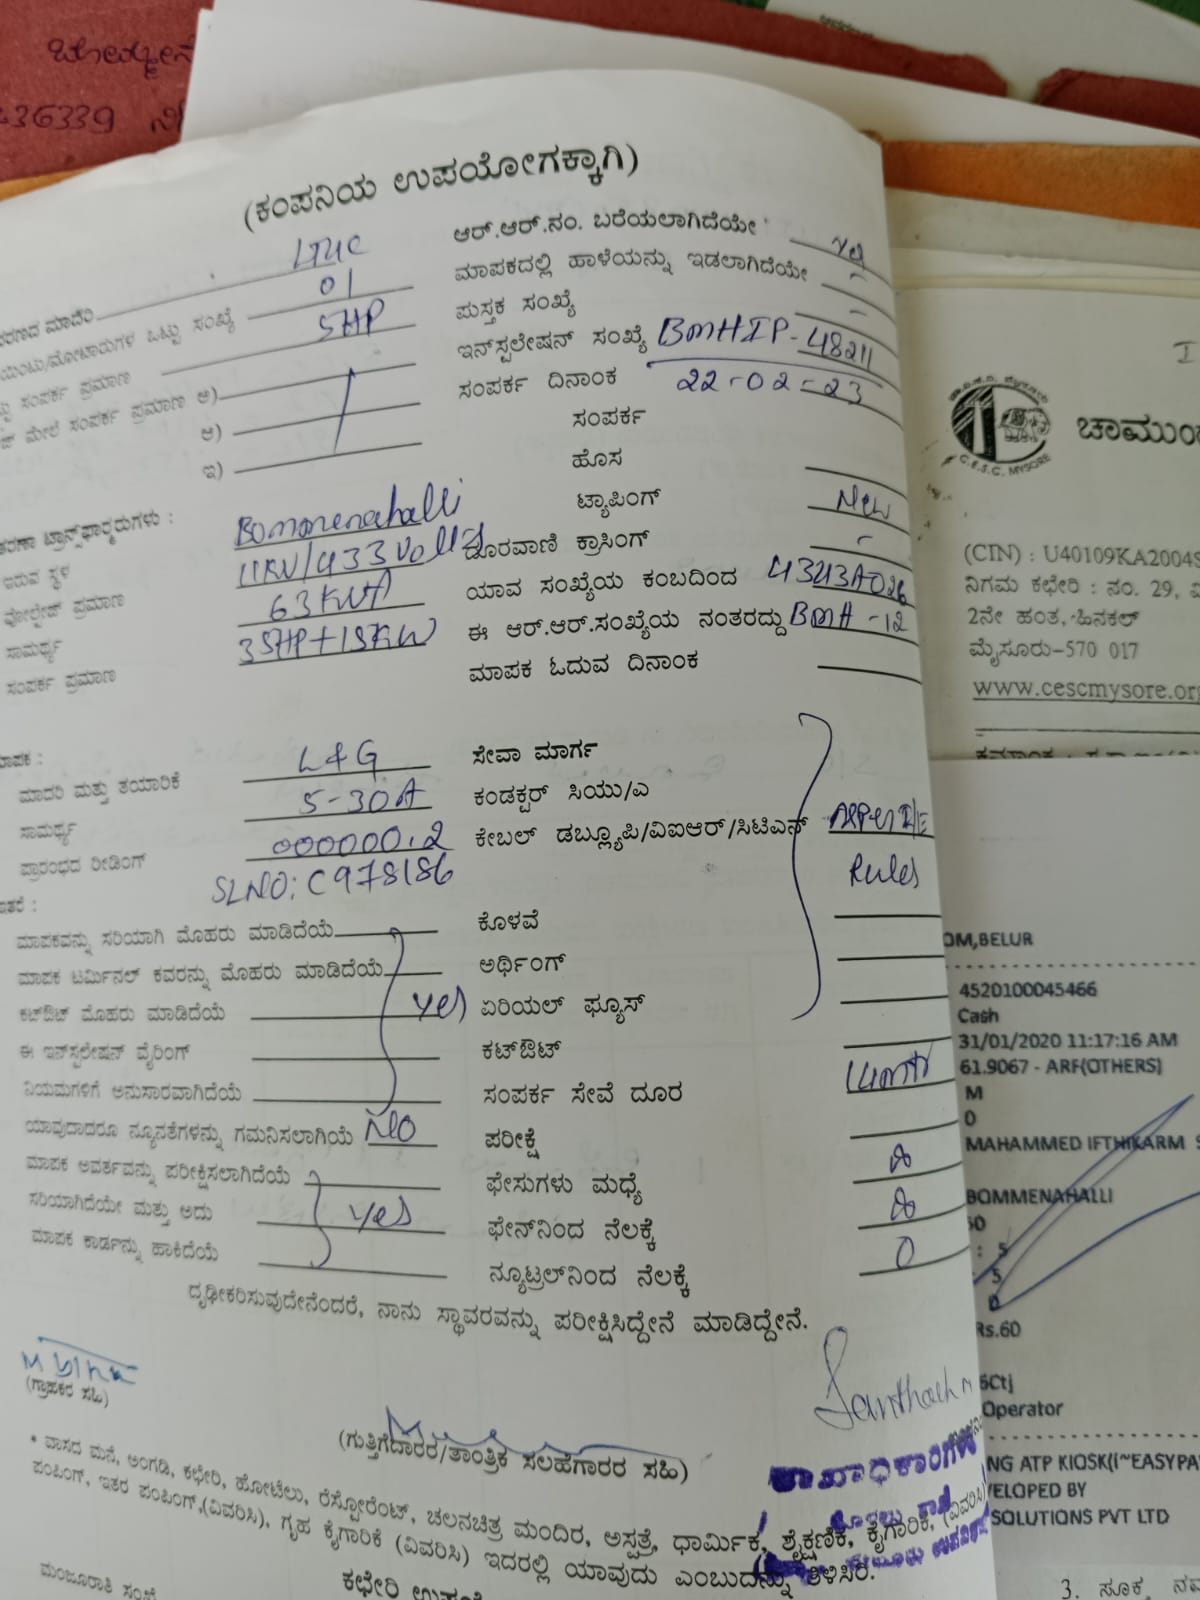 36339
(ಕಂಪನಿಯ ಉಪಯೋಗಕ್ಕಾಗಿ)
ಮಾದರಿ
ಒಟ್ಟು ಸಂಖ್ಯೆ 01
ಸಂಪರ್ಕ ಪ್ರಮಾಣ 5HP
ಮೇಲೆ ಸಂಪರ್ಕ ಪ್ರಮಾಣ ಅ)
ಆ)
ಇ)
ಟ್ರಾನ್ಸ್‌ಫಾರ್ಮರುಗಳು :
ಇರುವ ಸ್ಥಳ Bommenahalli
ವೋಲ್ಟೇಜ್ ಪ್ರಮಾಣ 11KV/433Volts
ಸಾಮರ್ಥ್ಯ 63KVA
ಸಂಪರ್ಕ ಪ್ರಮಾಣ
ಮಾದರಿ ಮತ್ತು ತಯಾರಿಕೆ L&G
ಸಾಮರ್ಥ್ಯ 5-30A
ಪ್ರಾರಂಭದ ರೀಡಿಂಗ್ 000000.2
SLNO: C978186
ಮಾಪಕವನ್ನು ಸರಿಯಾಗಿ ಮೊಹರು ಮಾಡಿದೆಯೆ
ಮಾಪಕ ಟರ್ಮಿನಲ್ ಕವರನ್ನು ಮೊಹರು ಮಾಡಿದೆಯೆ
ಕಟ್‌ಔಟ್ ಮೊಹರು ಮಾಡಿದೆಯೆ yes
ಈ ಇನ್‌ಸ್ಟಲೇಷನ್ ವೈರಿಂಗ್
ನಿಯಮಗಳಿಗೆ ಅನುಸಾರವಾಗಿದೆಯೆ
ಯಾವುದಾದರೂ ನ್ಯೂನತೆಗಳನ್ನು ಗಮನಿಸಲಾಗಿಯೆ NO
ಮಾಪಕ ಅವರ್ತವನ್ನು ಪರೀಕ್ಷಿಸಲಾಗಿದೆಯೆ
ಸರಿಯಾಗಿದೆಯೇ ಮತ್ತು ಅದು yes
ಮಾಪಕ ಕಾರ್ಡನ್ನು ಹಾಕಿದೆಯೆ
ಆರ್.ಆರ್.ನಂ. ಬರೆಯಲಾಗಿದೆಯೇ yes
ಮಾಪಕದಲ್ಲಿ ಹಾಳೆಯನ್ನು ಇಡಲಾಗಿದೆಯೇ -
ಪುಸ್ತಕ ಸಂಖ್ಯೆ -
ಇನ್‌ಸ್ಟಲೇಷನ್ ಸಂಖ್ಯೆ BMHIP-48211
ಸಂಪರ್ಕ ದಿನಾಂಕ 22-02-23
ಸಂಪರ್ಕ
ಹೊಸ
ಟ್ಯಾಪಿಂಗ್ New
ದೂರವಾಣಿ ಕ್ರಾಸಿಂಗ್ -
ಯಾವ ಸಂಖ್ಯೆಯ ಕಂಬದಿಂದ
ಈ ಆರ್.ಆರ್.ಸಂಖ್ಯೆಯ ನಂತರದ್ದು BMH-12
ಮಾಪಕ ಓದುವ ದಿನಾಂಕ
ಸೇವಾ ಮಾರ್ಗ
ಕಂಡಕ್ಟರ್ ಸಿಯು/ಎ
ಕೇಬಲ್ ಡಬ್ಲ್ಯೂಪಿ/ವಿಐಆರ್/ಸಿಟಿಎಸ್ As per I/E
Rules
ಕೊಳವೆ
ಅರ್ಥಿಂಗ್
ಏರಿಯಲ್ ಫ್ಯೂಸ್
ಕಟ್‌ಔಟ್
ಸಂಪರ್ಕ ಸೇವೆ ದೂರ
ಪರೀಕ್ಷೆ
ಫೇಸುಗಳು ಮಧ್ಯೆ
ಫೇಸ್‌ನಿಂದ ನೆಲಕ್ಕೆ
ನ್ಯೂಟ್ರಲ್‌ನಿಂದ ನೆಲಕ್ಕೆ 0
ದೃಢೀಕರಿಸುವುದೇನೆಂದರೆ, ನಾನು ಸ್ಥಾವರವನ್ನು ಪರೀಕ್ಷಿಸಿದ್ದೇನೆ ಮಾಡಿದ್ದೇನೆ.
(ಗ್ರಾಹಕರ ಸಹಿ)
(ಗುತ್ತಿಗೆದಾರರ/ತಾಂತ್ರಿಕ ಸಲಹೆಗಾರರ ಸಹಿ)
* ವಾಸದ ಮನೆ, ಅಂಗಡಿ, ಕಛೇರಿ, ಹೋಟೆಲು, ರೆಸ್ಟೋರೆಂಟ್, ಚಲನಚಿತ್ರ ಮಂದಿರ, ಅಸ್ಪತ್ರೆ, ಧಾರ್ಮಿಕ, ಶೈಕ್ಷಣಿಕ, ಕೈಗಾರಿಕೆ, (ವಿವರಿಸಿ)
ಪಂಪಿಂಗ್, ಇತರ ಪಂಪಿಂಗ್,(ವಿವರಿಸಿ), ಗೃಹ ಕೈಗಾರಿಕೆ (ವಿವರಿಸಿ) ಇದರಲ್ಲಿ ಯಾವುದು ಎಂಬುದನ್ನು ತಿಳಿಸಿರಿ.
ಮಂಜೂರಾತಿ ಸಂಖ್ಯೆ
C.E.S.C. MYSORE
(CIN) : U40109KA2004S
ನಿಗಮ ಕಛೇರಿ : ನಂ. 29,
2ನೇ ಹಂತ, ಹಿನಕಲ್
ಮೈಸೂರು-570 017
www.cescmysore.org
OM,BELUR
4520100045466
Cash
31/01/2020 11:17:16 AM
61.9067 - ARF(OTHERS)
M
0
MAHAMMED IFTHIKARM S
BOMMENAHALLI
: 5
5
0
Rs.60
Operator
NG ATP KIOSK(i~EASYPA
VELOPED BY
SOLUTIONS PVT LTD